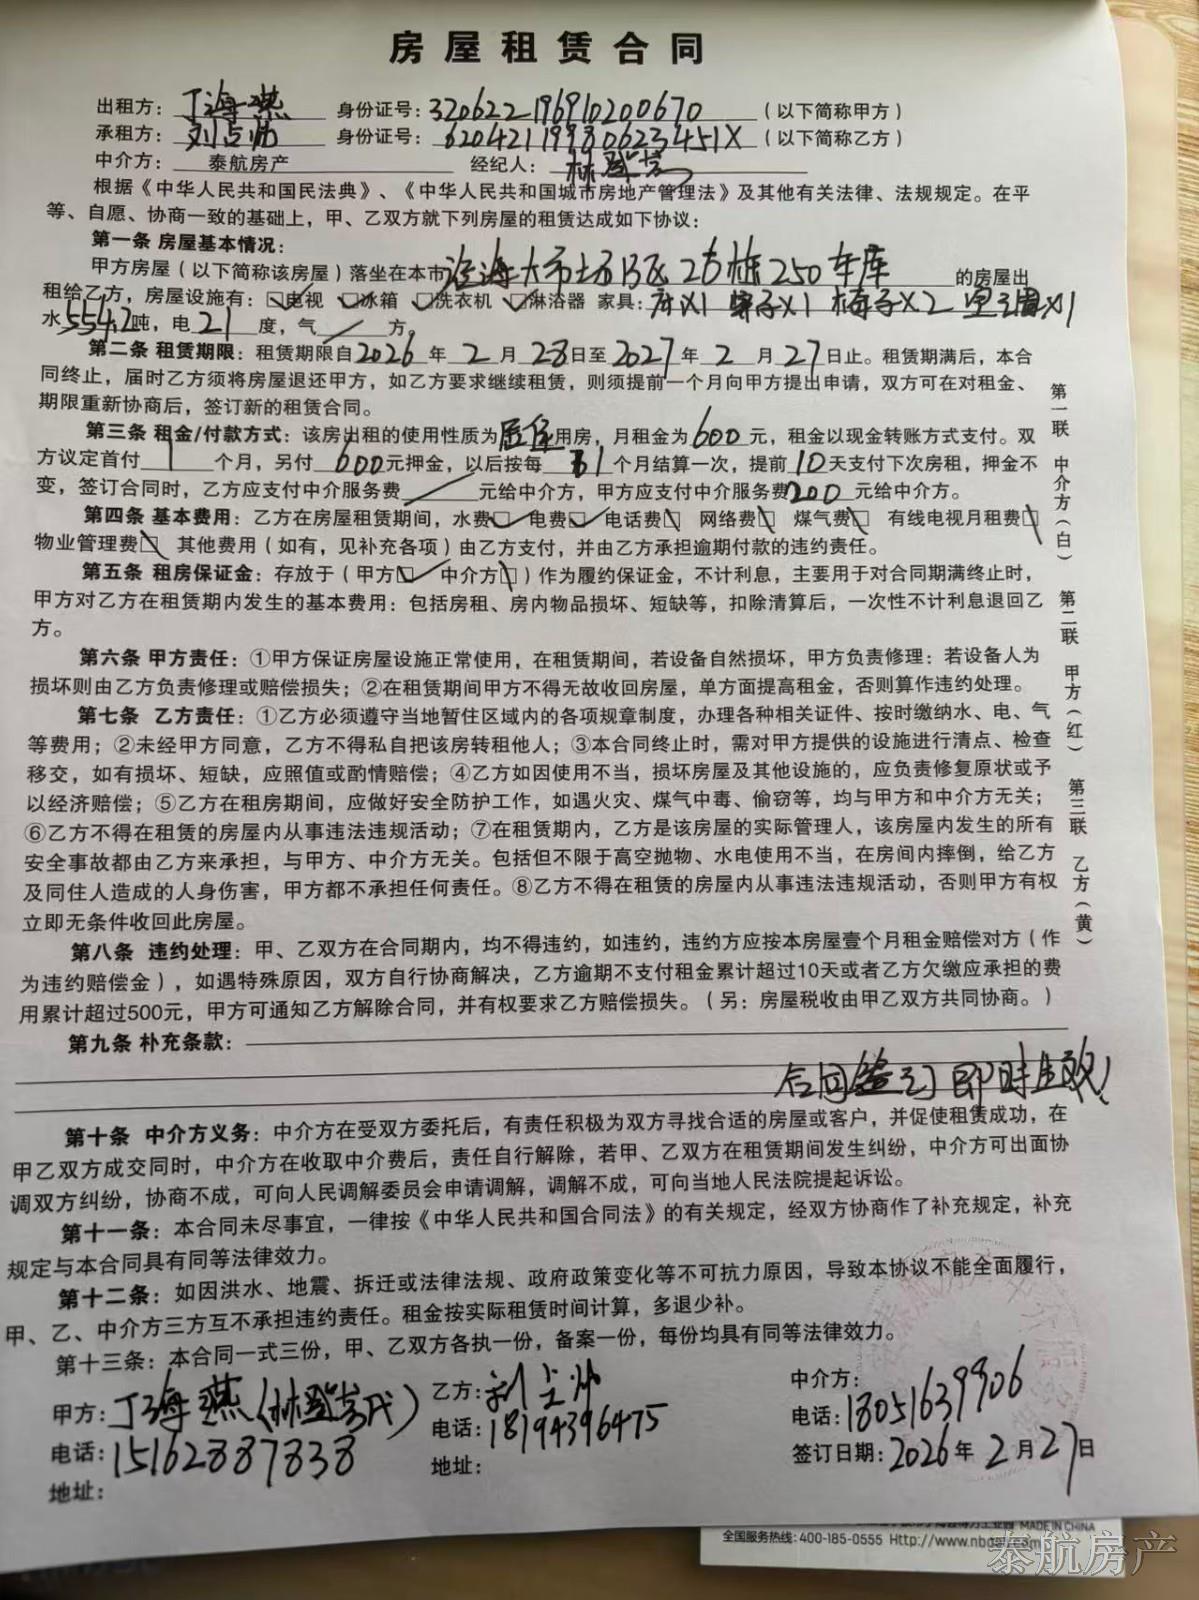 房屋租赁合同
出租方：丁海燕 身份证号：320622196910200670（以下简称甲方）
承租方：刘占帅 身份证号：62042119980623451X（以下简称乙方）
中介方：泰航房产 经纪人：林
根据《中华人民共和国民法典》、《中华人民共和国城市房地产管理法》及其他有关法律、法规规定。在平
等、自愿、协商一致的基础上，甲、乙双方就下列房屋的租赁达成如下协议：
第一条 房屋基本情况：
甲方房屋（以下简称该房屋）落坐在本市 大市场B区 栋250车库 的房屋出
租给乙方，房屋设施有：☑电视 ☑冰箱 ☑洗衣机 ☑淋浴器 家具：床X1 X1 椅子X2 X1
水5542吨，电21度，气／方。
第二条 租赁期限：租赁期限自2026年2月28日至2027年2月27日止。租赁期满后，本合
同终止，届时乙方须将房屋退还甲方，如乙方要求继续租赁，则须提前一个月向甲方提出申请，双方可在对租金、
期限重新协商后，签订新的租赁合同。
第三条 租金/付款方式：该房出租的使用性质为居住用房，月租金为600元，租金以现金转账方式支付。双
方议定首付1个月，另付600元押金，以后按每1个月结算一次，提前10天支付下次房租，押金不
变，签订合同时，乙方应支付中介服务费／元给中介方，甲方应支付中介服务费200元给中介方。
第四条 基本费用：乙方在房屋租赁期间，水费☑ 电费☑ 电话费□ 网络费□ 煤气费□ 有线电视月租费□
物业管理费□ 其他费用（如有，见补充各项）由乙方支付，并由乙方承担逾期付款的违约责任。
第五条 租房保证金：存放于（甲方☑ 中介方□）作为履约保证金，不计利息，主要用于对合同期满终止时，
甲方对乙方在租赁期内发生的基本费用：包括房租、房内物品损坏、短缺等，扣除清算后，一次性不计利息退回乙
方。
第六条 甲方责任：①甲方保证房屋设施正常使用，在租赁期间，若设备自然损坏，甲方负责修理：若设备人为
损坏则由乙方负责修理或赔偿损失；②在租赁期间甲方不得无故收回房屋，单方面提高租金，否则算作违约处理。
第七条 乙方责任：①乙方必须遵守当地暂住区域内的各项规章制度，办理各种相关证件、按时缴纳水、电、气
等费用；②未经甲方同意，乙方不得私自把该房转租他人；③本合同终止时，需对甲方提供的设施进行清点、检查
移交，如有损坏、短缺，应照值或酌情赔偿；④乙方如因使用不当，损坏房屋及其他设施的，应负责修复原状或予
以经济赔偿；⑤乙方在租房期间，应做好安全防护工作，如遇火灾、煤气中毒、偷窃等，均与甲方和中介方无关；
⑥乙方不得在租赁的房屋内从事违法违规活动；⑦在租赁期内，乙方是该房屋的实际管理人，该房屋内发生的所有
安全事故都由乙方来承担，与甲方、中介方无关。包括但不限于高空抛物、水电使用不当，在房间内摔倒，给乙方
及同住人造成的人身伤害，甲方都不承担任何责任。⑧乙方不得在租赁的房屋内从事违法违规活动，否则甲方有权
立即无条件收回此房屋。
第八条 违约处理：甲、乙双方在合同期内，均不得违约，如违约，违约方应按本房屋壹个月租金赔偿对方（作
为违约赔偿金），如遇特殊原因，双方自行协商解决，乙方逾期不支付租金累计超过10天或者乙方欠缴应承担的费
用累计超过500元，甲方可通知乙方解除合同，并有权要求乙方赔偿损失。（另：房屋税收由甲乙双方共同协商。）
第九条 补充条款：
合同签订即时生效！
第十条 中介方义务：中介方在受双方委托后，有责任积极为双方寻找合适的房屋或客户，并促使租赁成功，在
甲乙双方成交同时，中介方在收取中介费后，责任自行解除，若甲、乙双方在租赁期间发生纠纷，中介方可出面协
调双方纠纷，协商不成，可向人民调解委员会申请调解，调解不成，可向当地人民法院提起诉讼。
第十一条：本合同未尽事宜，一律按《中华人民共和国合同法》的有关规定，经双方协商作了补充规定，补充
规定与本合同具有同等法律效力。
第十二条：如因洪水、地震、拆迁或法律法规、政府政策变化等不可抗力原因，导致本协议不能全面履行，
甲、乙、中介方三方互不承担违约责任。租金按实际租赁时间计算，多退少补。
第十三条：本合同一式三份，甲、乙双方各执一份，备案一份，每份均具有同等法律效力。
甲方：丁海燕（林 代） 乙方：刘占帅 中介方：
电话：15162887838 电话：18194396475 电话：18051639906
地址： 地址： 签订日期：2026年2月27日
第一联 中介方（白） 第二联 甲方（红） 第三联 乙方（黄）
MADE IN CHINA
全国服务热线：400-185-0555 Http://www.nb
泰航房产